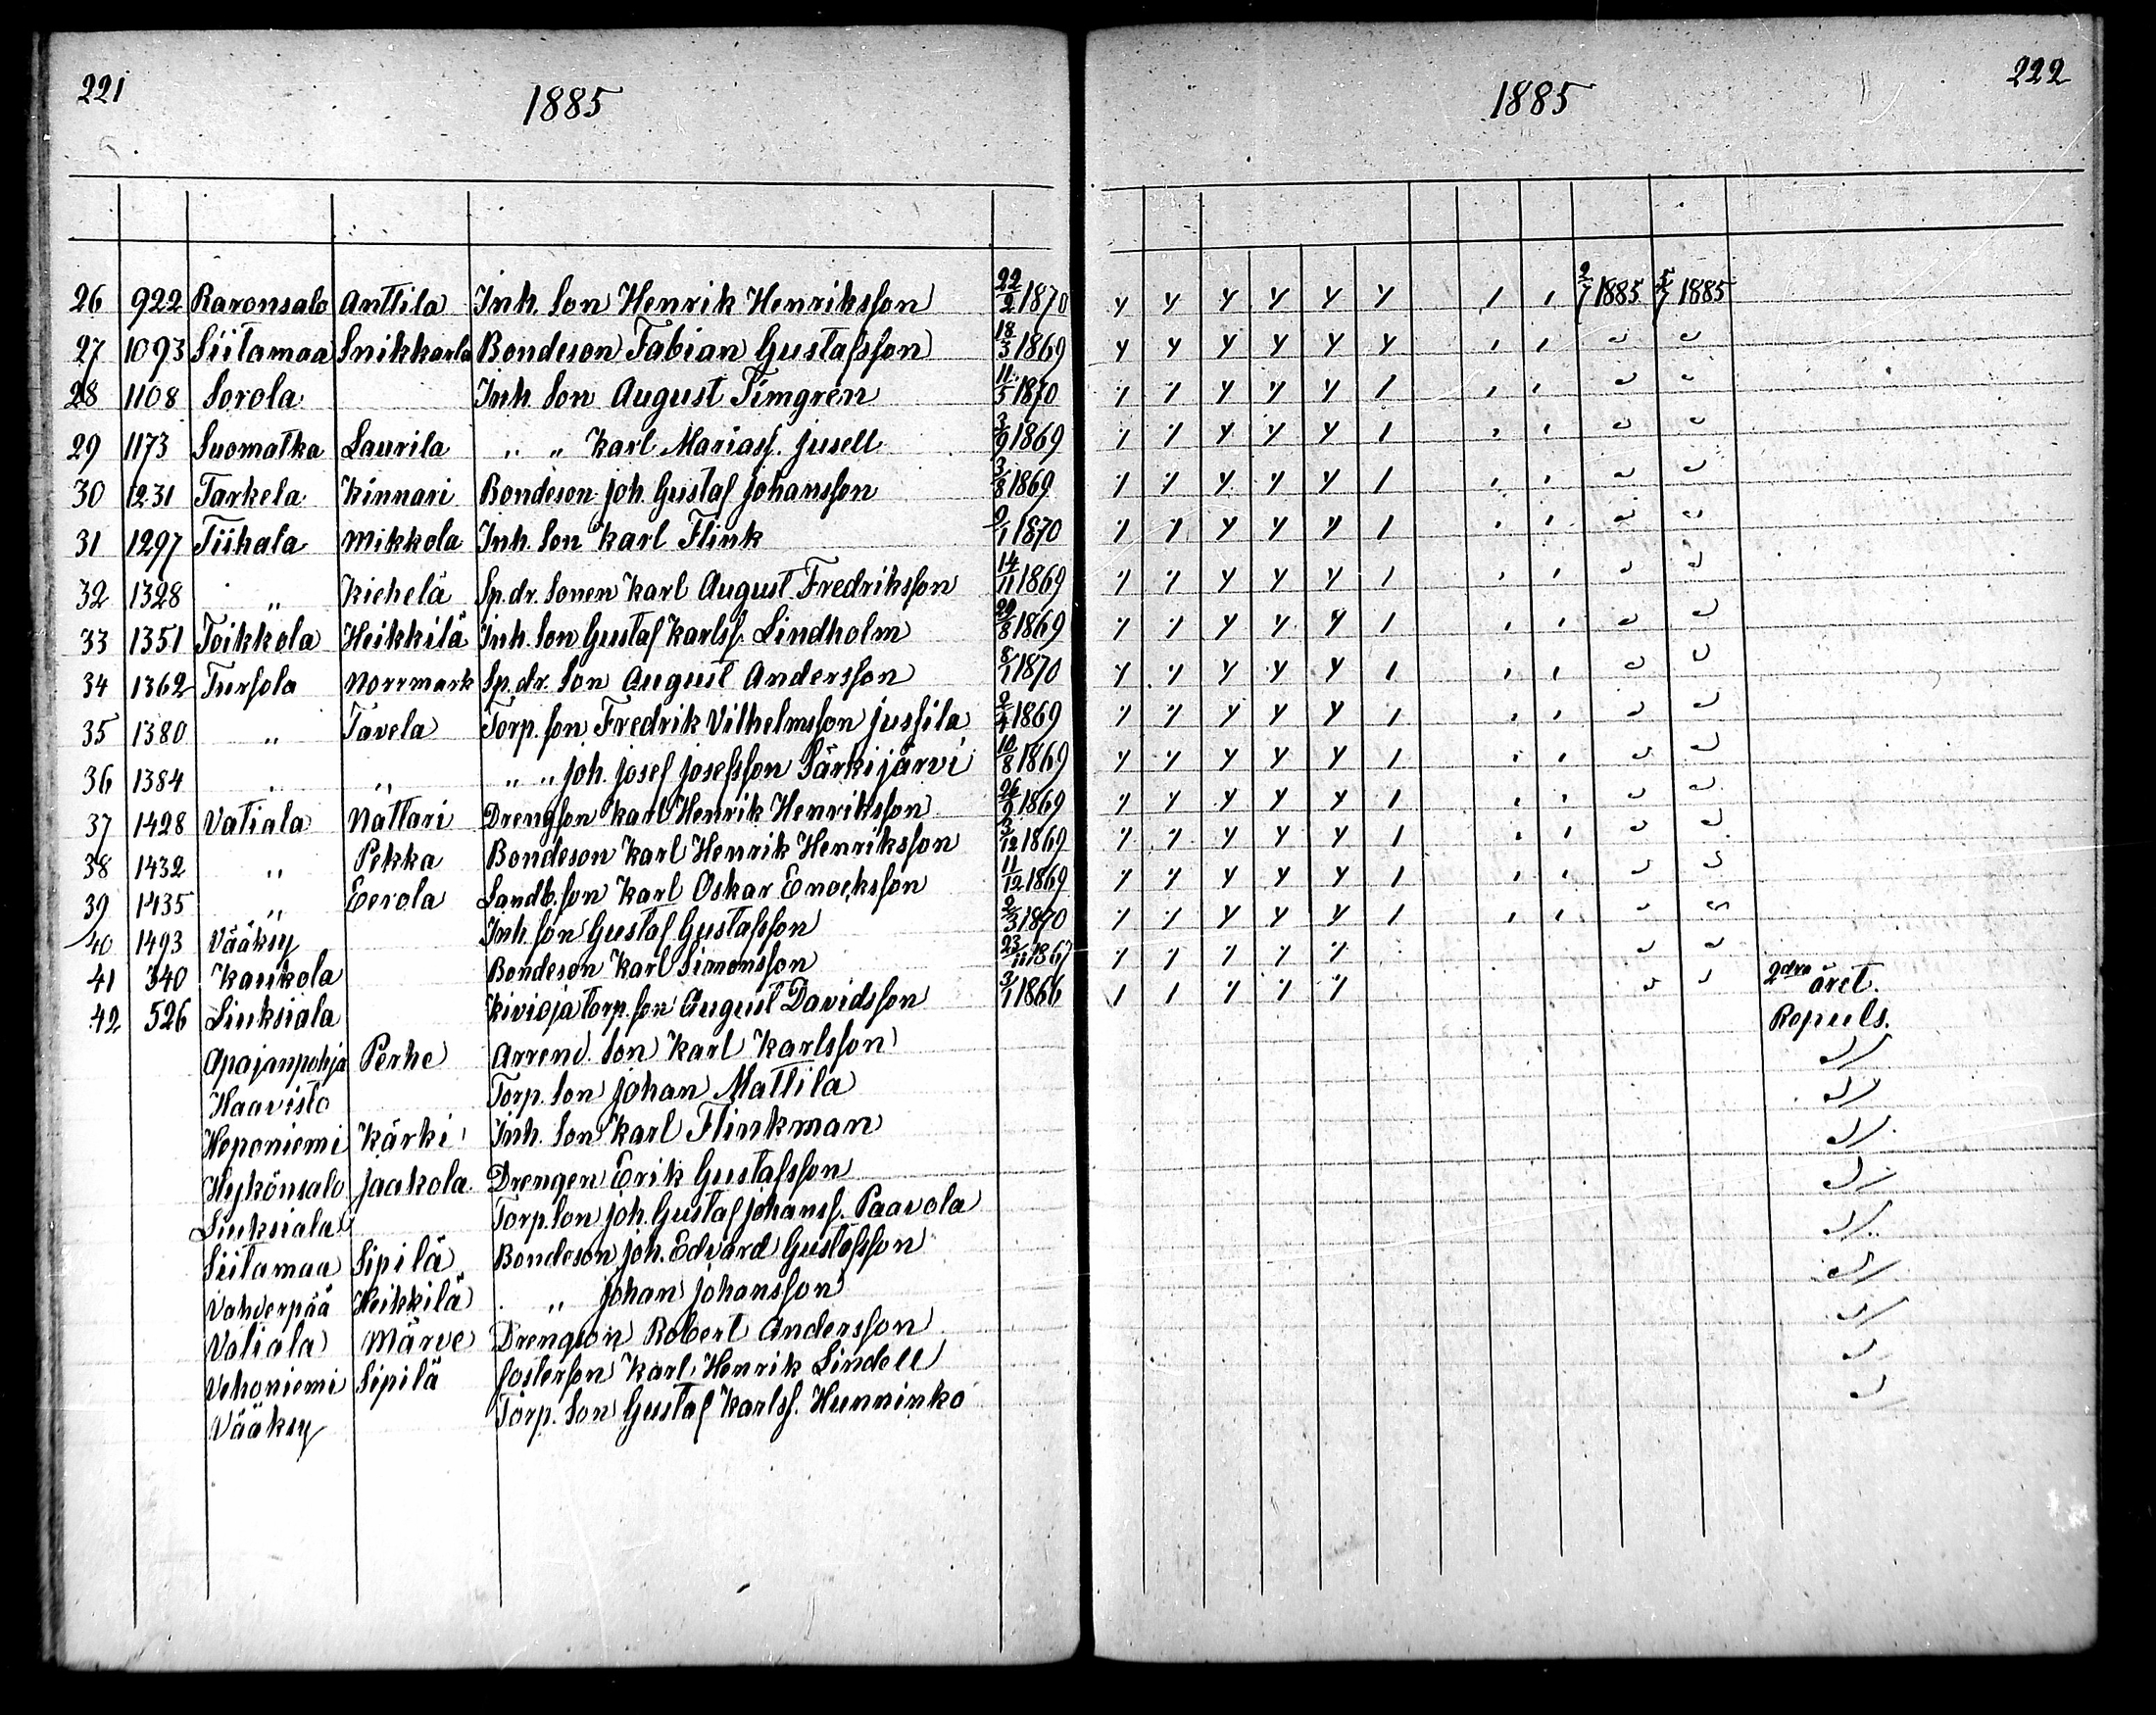 221
1885
26 922 Raronsalo Anttila Inh. Son Henrik Henriksson 22/2 1870
27 1093 Siitamaa Snikkarla Bondeson Fabian Gustafsson 18/3 1869
28 1108 Sorola Inh. Son August Timgren 11/5 1870
29 1173 Suomatka Laurila " " Karl Mariass. Jusell 3/9 1869
30 1231 Tarkela Kinnari Bondeson Joh. Gustaf Johansson 3/8 1869
31 1297 Tiihala Mikkola Inh. Son Karl Flink 9/1 1870
32 1328 " Kiehelä Sp. dr. Sonen Karl August Fredriksson 14/11 1869
33 1351 Toikkola Heikkilä Inh. Son Gustaf Karlss. Lindholm 29/8 1869
34 1362 Tursola Norrmark Sp. dr. Son August Andersson 8/1 1870
35 1380 " Tavela Torp. son Fredrik Vilhelmsson Jussila 2/4 1869
36 1384 " " " " Joh. Josef Josefsson Särkijärvi 10/8 1869
37 1428 Vatiala Nattari Drengson Karl Henrik Henriksson 26/9 1869
38 1432 " Pekka Bondeson Karl Henrik Henriksson 3/12 1869
39 1435 " Eerola Landb. son Karl Oskar Enocksson 11/12 1869
40 1493 Vääksy Inh. son Gustaf Gustafsson 2/3 1870
41 340 Kaukola Bondeson Karl Simonsson 23/11 1867
42 526 Liuksiala Kivioja torp. son August Davidsson 3/1 1866
Apajanpohja Perhe Arrend. Son Karl Karlsson
Haavisto Torp. Son Johan Mattila
Heponiemi Kärki Inh. Son Karl Flinkman
Hykönsalo Jaakola Drengen Erik Gustafsson
Liuksiala Torp. Son Joh. Gustaf Johanss. Paavola
Siitamaa Sipilä Bondeson Joh. Edvard Gustafsson
Vahderpää Heikkilä " Johan Johansson
Vatiala Märve Drengson Robert Andersson
Vehoniemi Sipilä fosterson Karl Henrik Lindell
Vääksy Torp. Son Gustaf Karlss. Hunninko
222
1885
2/7 1885 5/7 1885
2dra året.
Repuls.